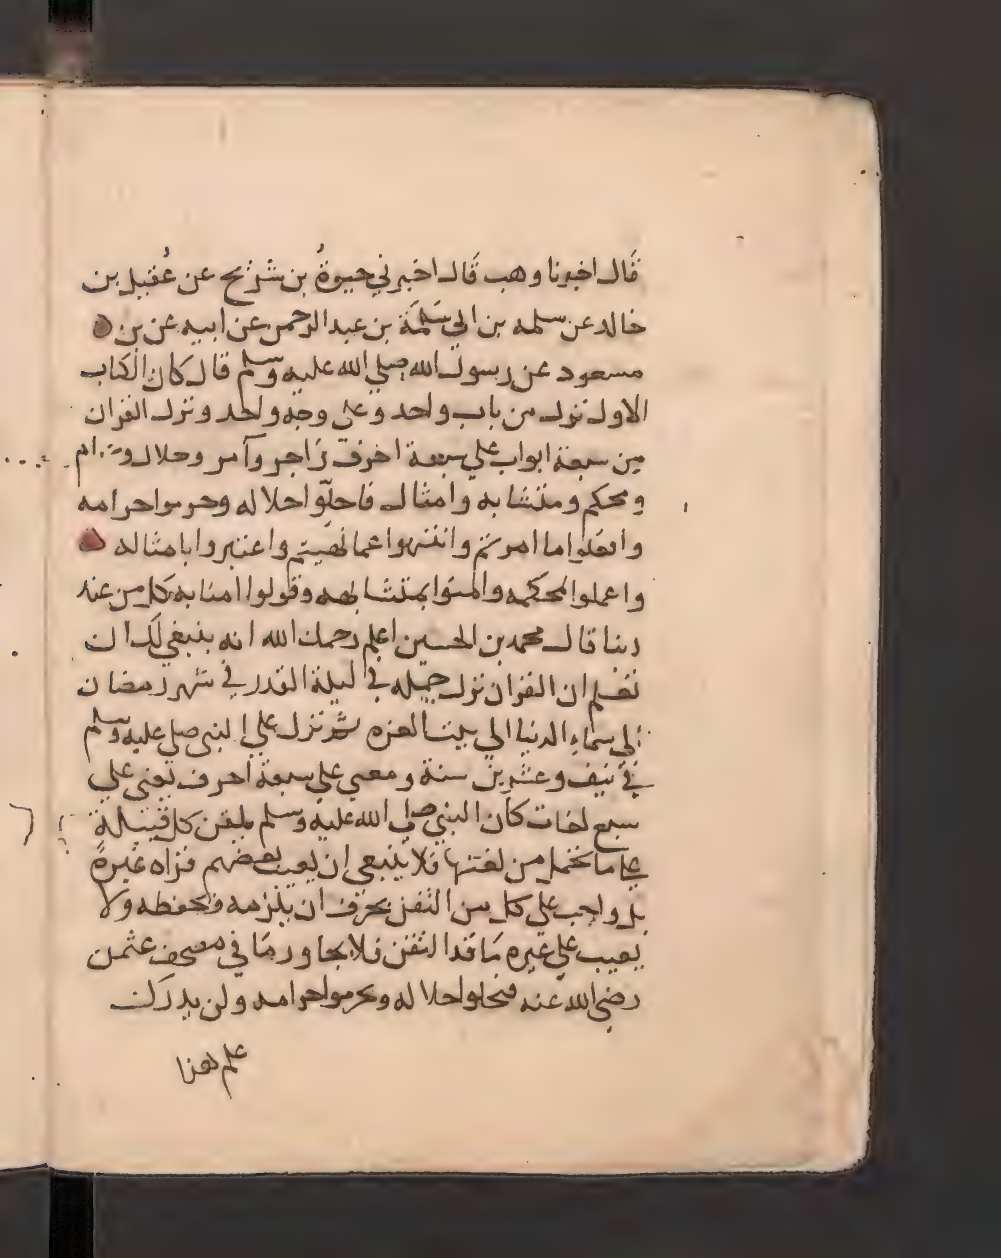 قال اخبرنا وهب قال اخبرني حيوة بن شريح عن عُقيل بن
خالد عن سلمه بن ابي سَلَمَة بن عبد الرحمن عن ابيه عن بن
مسعود عن رسول الله صلي الله عليه وسلم قال كان الكتاب
الاول نزل من باب واحد وعلى وجه واحد ونزل القران
من سبعة ابواب علي سبعة احرف زاجر وآمر وحلال وحرام
ومحكم ومتشابه وامثال فاحلّوا حلاله وحرموا حرامه
وافعلوا ما امرتم وانتهوا عما نهيتم واعتبروا بامثاله
واعملوا بمحكمه وامنوا بمتشابهه وقولوا امنا به كل من عند
ربنا قال محمد بن الحسين اعلم رحمك الله انه ينبغي لك ان
تعلم ان القران نزل جمله في ليلة القدر في شهر رمضان
الي سماء الدنيا الي بيت العزه ثم نزل علي النبي صلي عليه وسلم
في نيف وعشرين سنة ومعني علي سبعة احرف يعني علي
سبع لغات كان النبي صلي الله عليه وسلم يلقن كل قبيلة
علي ما تحمل من لغتها فلا ينبغي ان يعيب بعضهم قراه غيره
بل واجب علي كل من التقن بحرف ان يلزمه ويحفظه ولا
يعيب علي غيره ما قد التقن فلا يجاوز ما في مصحف عثمن
رضي الله عنه فيحلوا حلاله ويحرموا حرامه ولن يدرك
علم هذا